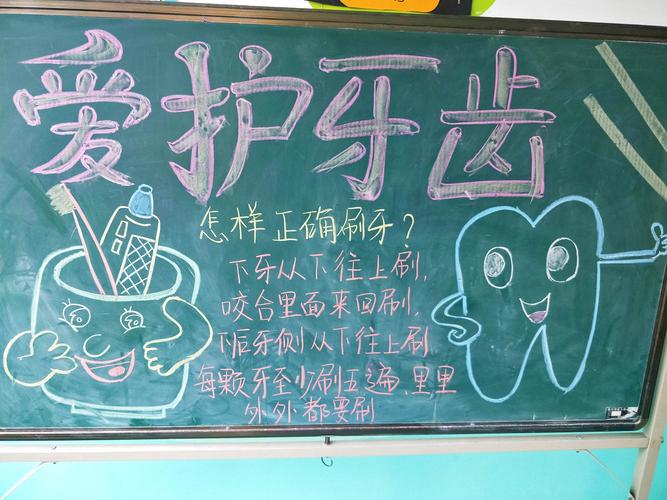 爱护牙齿
怎样正确刷牙？
下牙从下往上刷，
咬合里面来回刷，
下后牙侧从下往上刷
每颗牙至少刷五遍、里里
外外都要刷